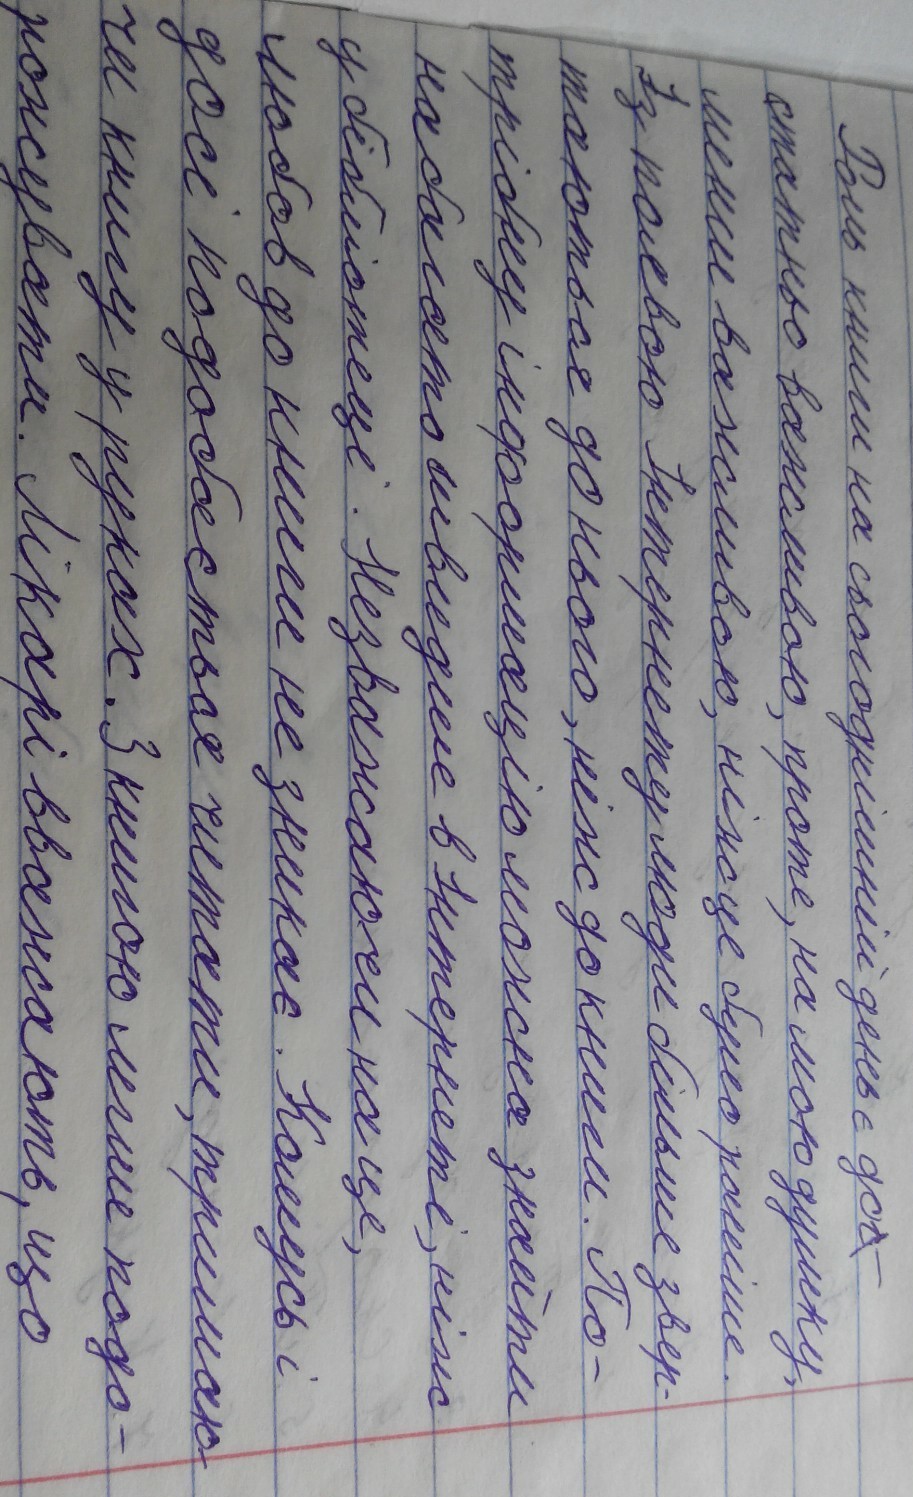 Роль книги на сьогоднішній день є дос-
статньо важливою, проте, на мою думку,
менш важливою, ніж це було раніше.
Із появою Інтернету люди більше звер-
таються до нього, ніж до книги. По-
трібну інформацію можна знайти
набагато швидше в Інтернеті, ніж
у бібліотеці. Незважаючи на це,
любов до книги не зникає. Комусь і
досі подобається читати, тримаю-
чи книгу у руках. З книгою легше подо-
рожувати. Лікарі вважають, що